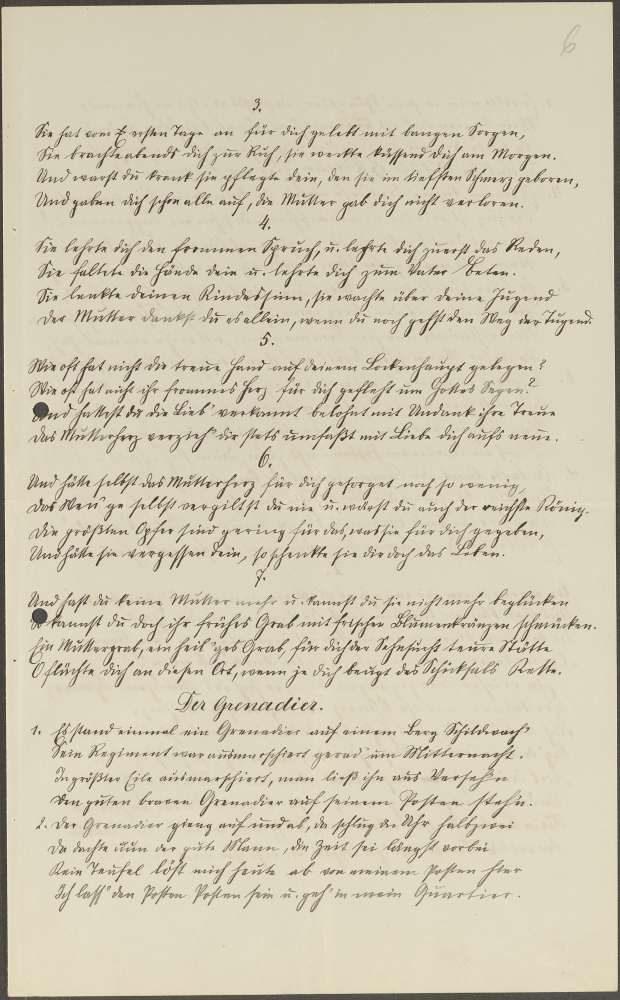 6
3.
Sie hat vom ersten Tage an für dich gelebt mit bangen Sorgen,
Sie brachte abends dich zur Ruh, sie weckte küssend dich am Morgen.
Und warst du krank sie pflegte dein, den sie im tiefsten Schmerz geboren,
Und gaben dich schon alle auf, die Mutter gab dich nicht verloren.
4.
Sie lehrte dich den frommen Spruch, u. lehrte dich zuerst das Reden,
Sie faltete die Hände dein u. lehrte dich zum Vater beten.
Sie lenkte deinen Kindessinn, sie wachte über deine Jugend
Der Mutter dankst du es allein, wenn du noch gehst den Weg der Tugend.
5.
Wie oft hat nicht die treue Hand auf deinem Lockenhaupt gelegen?
Wie oft hat nicht ihr frommes Herz für dich gefleht um Gottes Segen?
Und hattest du die Lieb' verkannt belohnt mit Undank ihre Treue
Das Mutterherz verzieh' dir stets umfaßt mit Liebe dich aufs neue.
6.
Und hätte selbst das Mutterherz für dich gesorget noch so wenig,
Das Wen'ge selbst vergiltst du nie u. wärst du auch der reichste König.
Die größten Opfer sind gering für das, was sie für dich gegeben,
Und hätte sie vergessen dein, so schenkte sie dir doch das Leben.
7.
Und hast du keine Mutter mehr u. kannst du sie nicht mehr beglücken
So kannst du doch ihr frühes Grab mit frischen Blumenkränzen schmücken.
Ein Muttergrab, ein heil'ges Grab, für dich der Sehnsucht teure Stätte
O flüchte dich an diesen Ort, wenn je dich beugt des Schicksals Kette.
Der Grenadier.
1. Es stand einmal ein Grenadier auf einem Berg Schildwach'
Sein Regiment war ausmarschiert gerad' um Mitternacht.
In größter Eile ausmarschiert, man ließ ihn aus Verseh'n
Den guten braven Grenadier auf seinem Posten steh'n.
2. Der Grenadier gieng auf und ab, da schlug die Uhr halbzwei
Da dachte nun der gute Mann, die Zeit sei längst vorbei
Kein Teufel löst mich heute ab von meinem Posten hier
Ich lass' den Posten Posten sein u. geh' in mein Quartier.